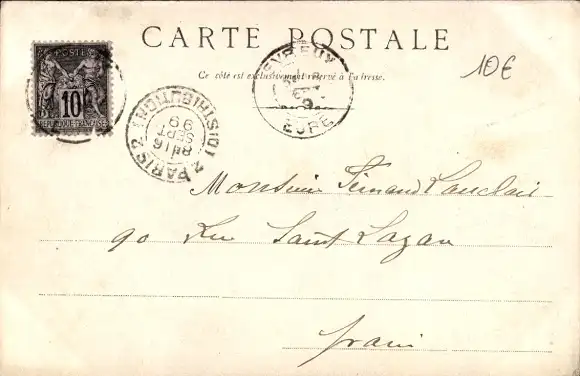 CARTE POSTALE
Ce côté est exclusivement réservé à l'adresse.
10€
POSTES
10
REPUBLIQUE FRANÇAISE
EVREUX
EURE
PARIS 2 DISTRIBUTION
8E 16
SEPT
99
Monsieur Fernand Lauclair
90 Rue Saint Lazare
Paris